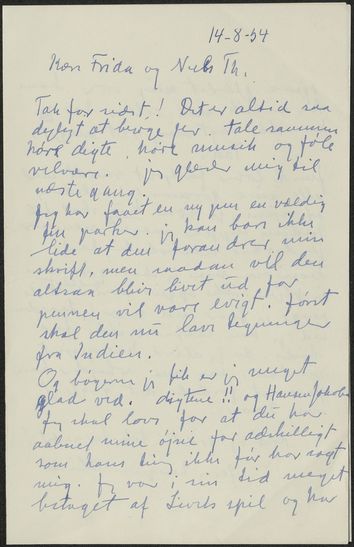 14-8-54
Kære Frida og Niels Th.
Tak for sidst! Det er altid saa
dejligt at besøge jer. tale sammen
høre digte, høre musik og føle
velvære. jeg glæder mig til
næste gang.
Jeg har faaet en ny pen en vældig
fin parker. jeg kan bare ikke
lide at den forandrer min
skrift, men saadan vil den
altsaa blive livet ud for
pennen vil vare evigt. først
skal den nu lave tegninger
fra Indien.
Og bøgerne jeg fik er jeg meget
glad ved. digtene!! og Hansen Jakobsen
Jeg skal love for at du har
aabnet mine øjne for adskilligt
som hans ting ikke før har sagt
mig. Jeg var i sin tid meget
betaget af Livets spil og har